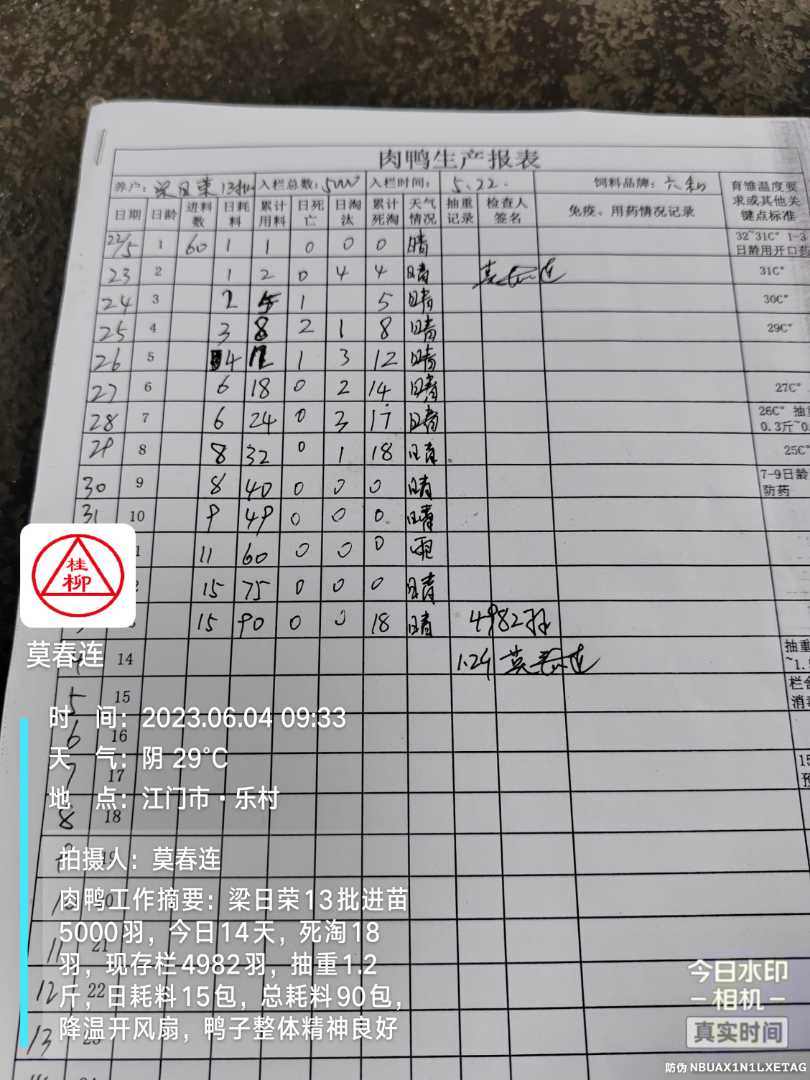 肉鸭生产报表
养户: 梁日荣 13批 入栏总数: 5000 入栏时间: 5.22. 饲料品牌: 六和 育雏温度要求或其他关键点标准
日期 日龄 进料数 日耗料 累计用料 日死亡 日淘汰 累计死淘 天气情况 抽重记录 检查人签名 免疫、用药情况记录
22/5 1 60 1 1 0 0 0 晴 32~31C° 1-3日龄用开口药
23 2 1 2 0 4 4 晴 莫春连 31C°
24 3 2 5 1 5 晴 30C°
25 4 3 8 2 1 8 晴 29C°
26 5 4 12 1 3 12 晴
27 6 6 18 0 2 14 晴 27C°
28 7 6 24 0 3 17 晴 26C° 抽重
0.3斤~0.
29 8 8 32 0 1 18 晴 25C°
30 9 8 40 0 0 0 晴 7-9日龄
防药
31 10 9 49 0 0 0 晴
1 11 60 0 0 0 雨
2 15 75 0 0 0 晴
3 15 90 0 0 18 晴 4982羽
4 14 1.24 莫春连 抽重
~1.
5 15 栏舍
消毒
6 16
7 17 15
8 18
11 21
12 22
13
桂柳
莫春连
时 间: 2023.06.04 09:33
天 气: 阴 29°C
地 点: 江门市·乐村
拍摄人: 莫春连
肉鸭工作摘要: 梁日荣13批进苗
5000羽, 今日14天, 死淘18
羽, 现存栏4982羽, 抽重1.2
斤, 日耗料15包, 总耗料90包,
降温开风扇, 鸭子整体精神良好
今日水印
相机
真实时间
防伪 NBUAX1N1LXETAG